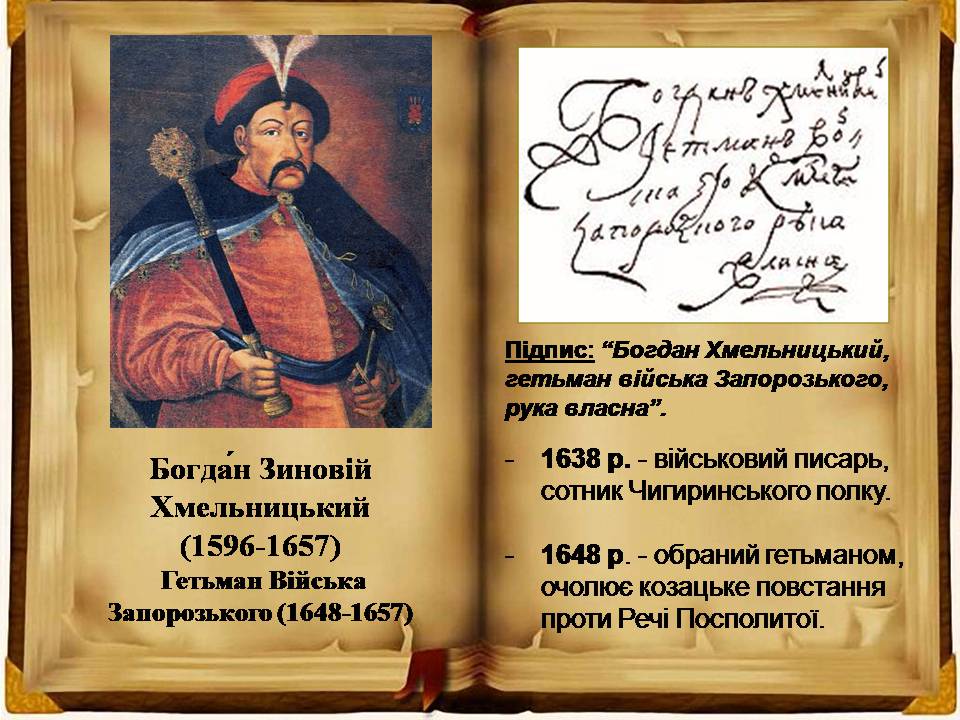 Богда́н Зиновій
Хмельницький
(1596-1657)
Гетьман Війська
Запорозького (1648-1657)
Богданъ
Гетманъ
Запорозкого рука
власна
Підпис: “Богдан Хмельницький,
гетьман війська Запорозького,
рука власна”.
- 1638 р. - військовий писарь,
сотник Чигиринського полку.
- 1648 р. - обраний гетьманом,
очолює козацьке повстання
проти Речі Посполитої.